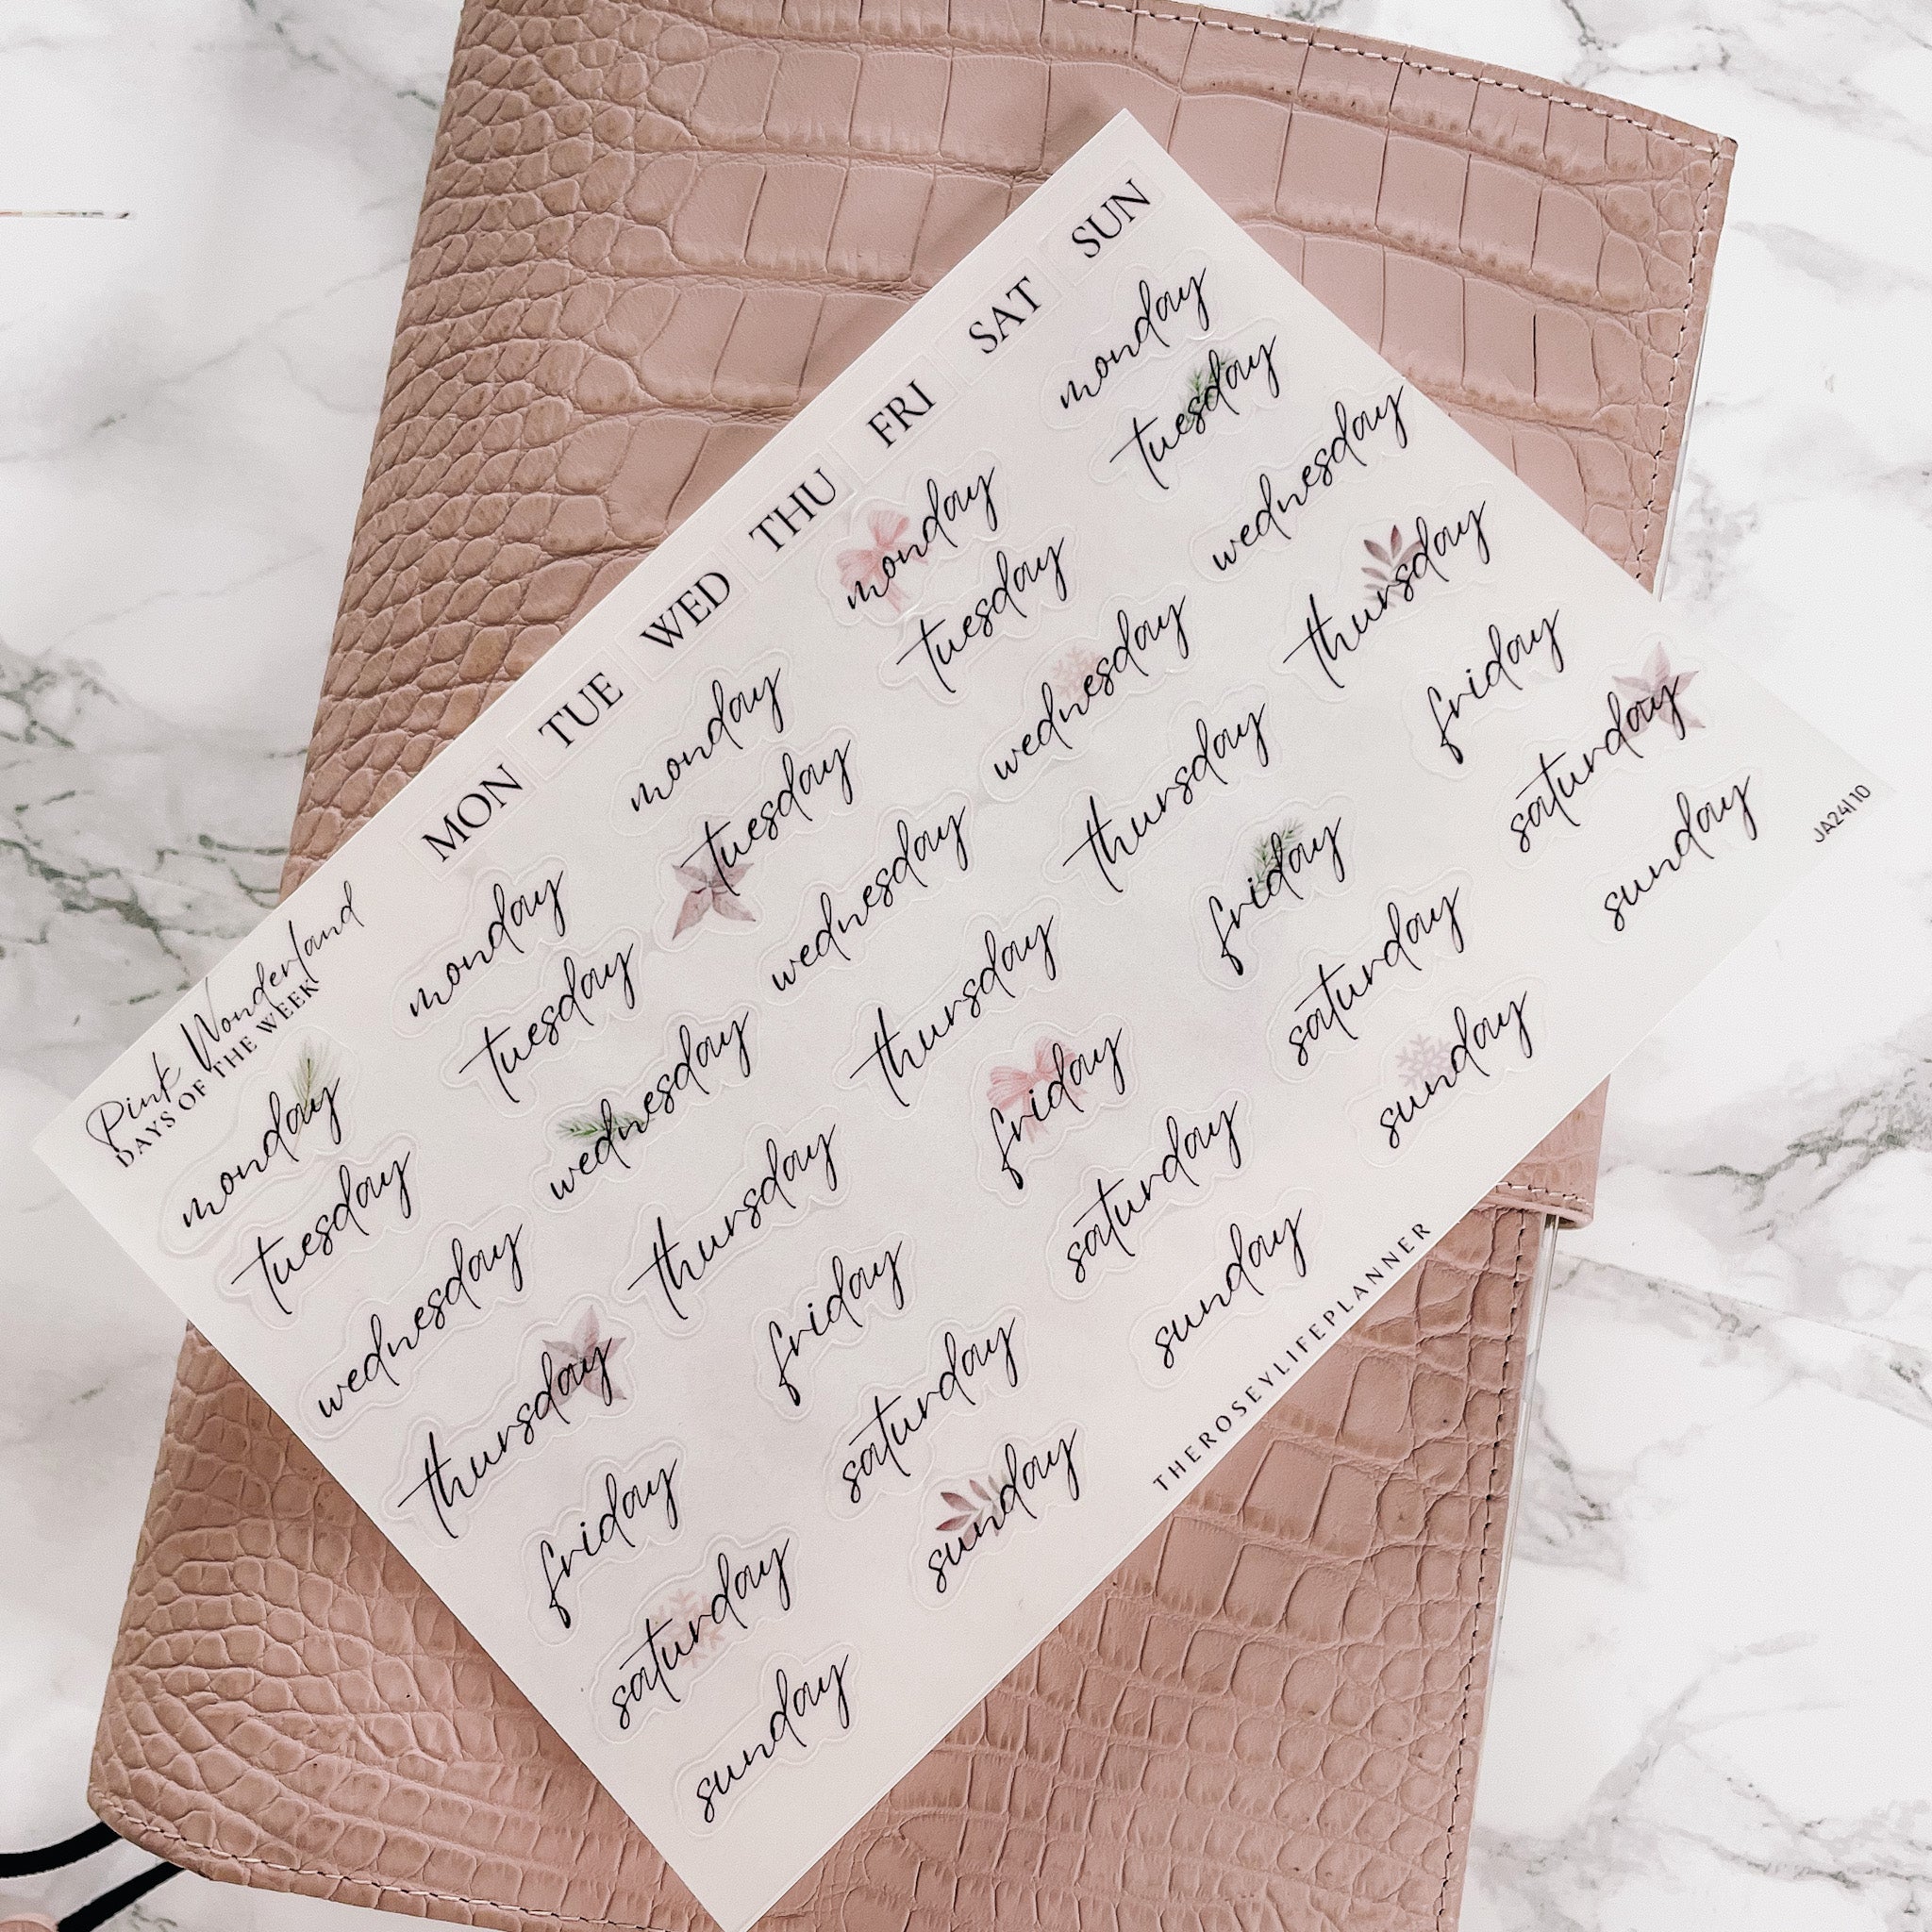 Pink Wonderland
DAYS OF THE WEEK
MON TUE WED THU FRI SAT SUN
monday monday monday monday monday
tuesday tuesday tuesday tuesday tuesday
wednesday wednesday wednesday wednesday wednesday
thursday thursday thursday thursday thursday
friday friday friday friday friday
saturday saturday saturday saturday saturday
sunday sunday sunday sunday sunday
THEROSEYLIFEPLANNER
JA24110